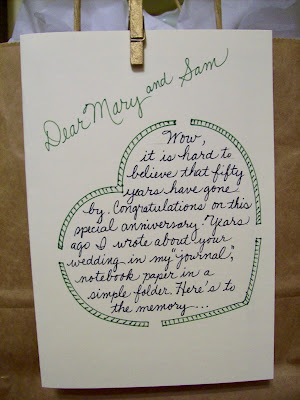 Dear Mary and Sam
Wow,
it is hard to
believe that fifty
years have gone
by. Congratulations on this
special anniversary. Years
ago I wrote about your
wedding in my "journal",
notebook paper in a
simple folder. Here's to
the memory...